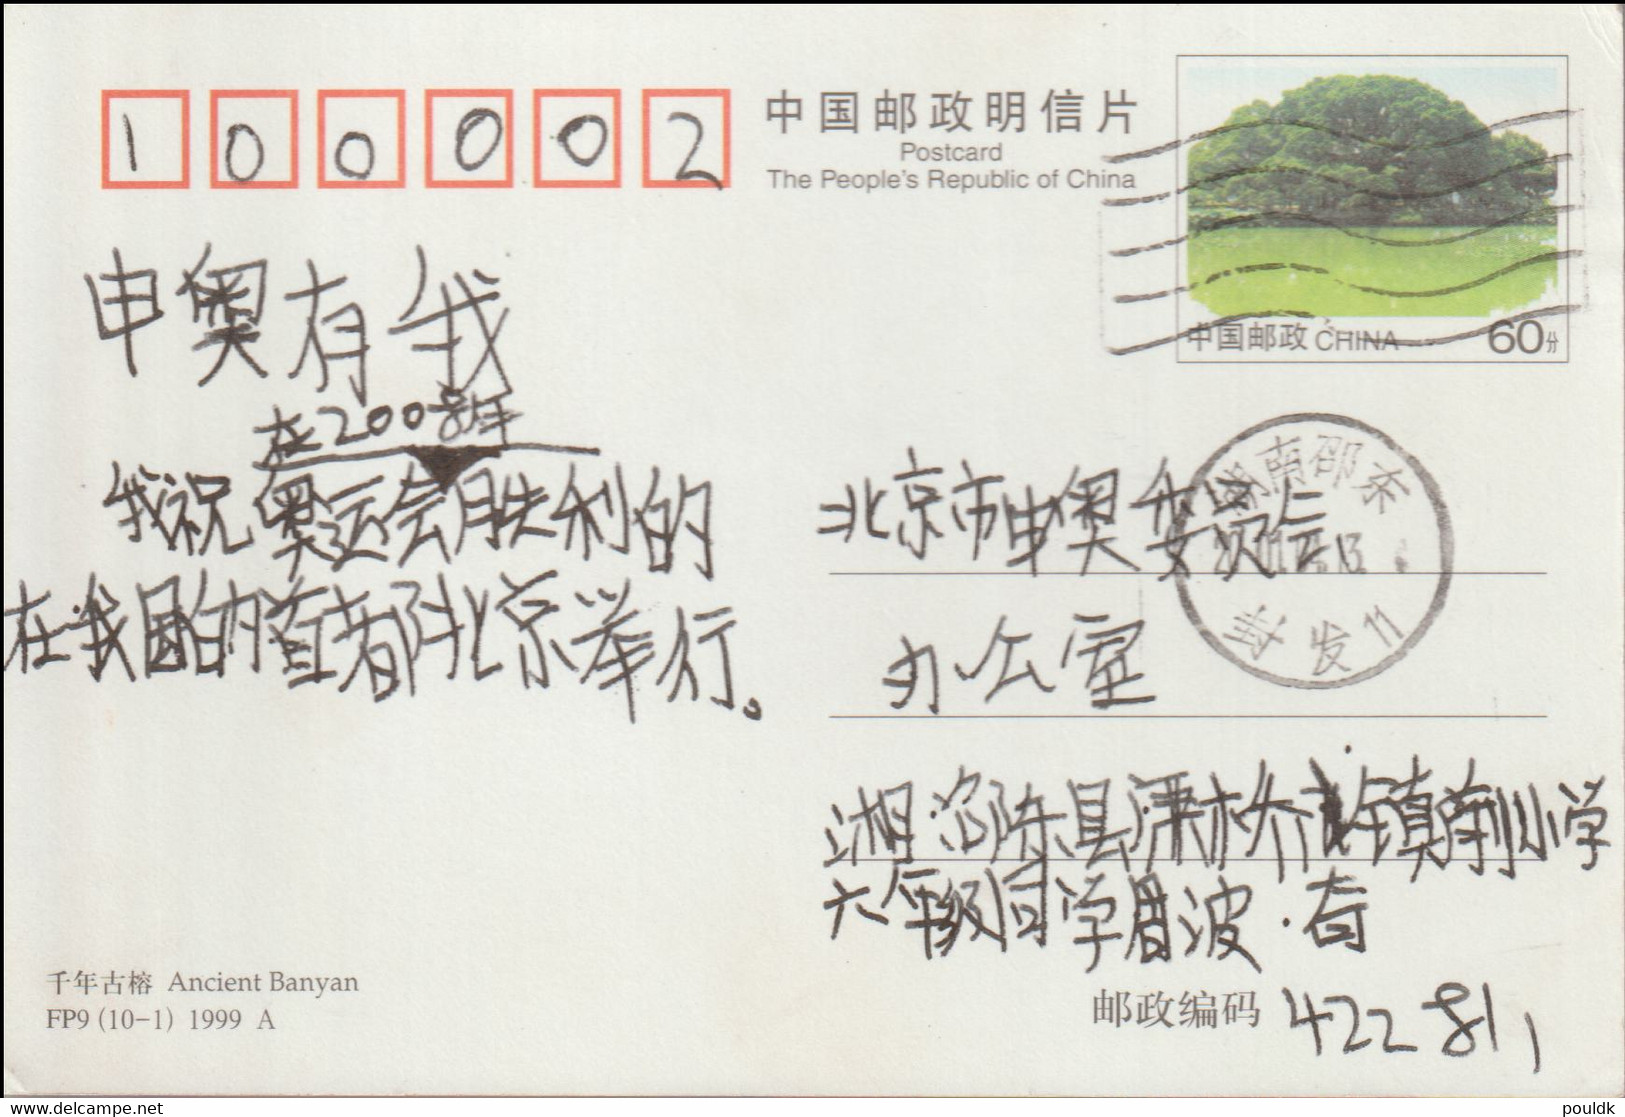 100002
中国邮政明信片
Postcard
The People's Republic of China
中国邮政 CHINA 60分
申奥有我
在2008年
我祝奥运会胜利的
在我国的首都北京举行。
北京市申奥委员会
办公室
湖南邵东
封发11
湘·邵东县廉桥镇南小学
六年级同学周波·春
千年古榕 Ancient Banyan
FP9 (10-1) 1999 A
邮政编码 422811
delcampe.net
pouldk